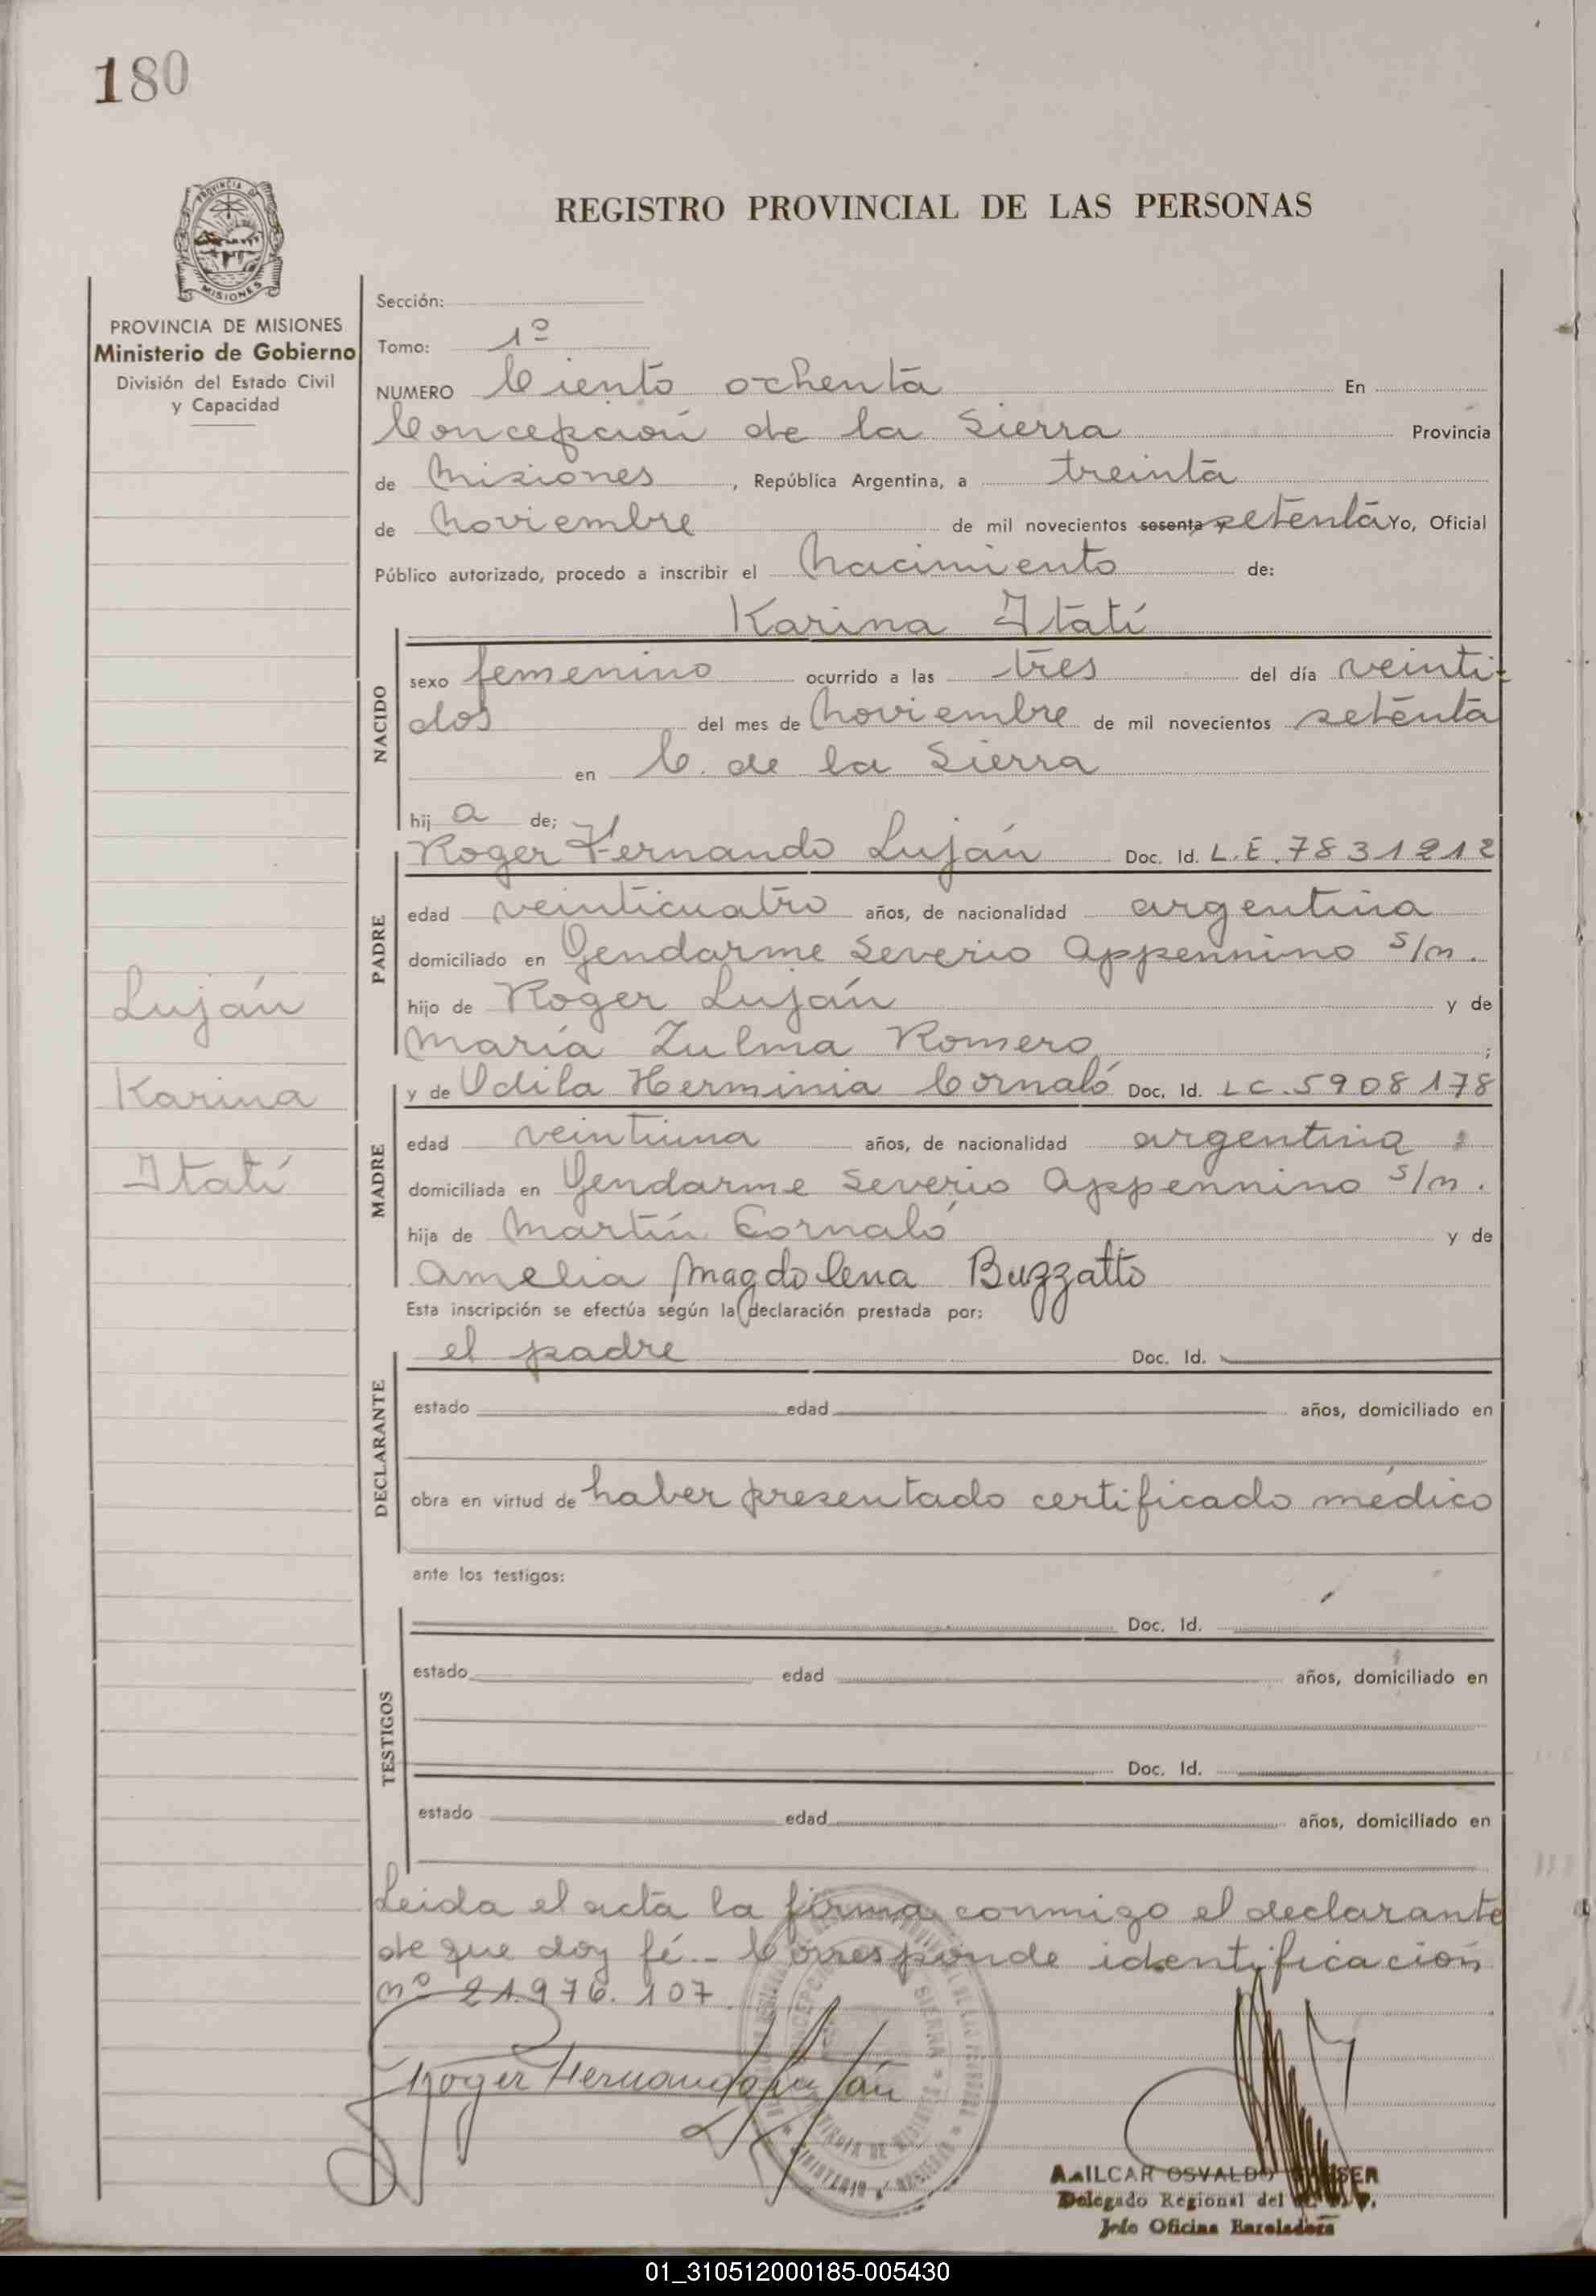 180
REGISTRO PROVINCIAL DE LAS PERSONAS
PROVINCIA DE
MISIONES
PROVINCIA DE MISIONES
Ministerio de Gobierno
División del Estado Civil
y Capacidad
Luján
Karina
Itatí
Sección:
Tomo: 1º
NUMERO Ciento ochenta En
Concepción de la Sierra Provincia
de Misiones, República Argentina, a treinta
de Noviembre de mil novecientos sesenta y setenta Yo, Oficial
Público autorizado, procedo a inscribir el Nacimiento de:
Karina Itatí
NACIDO
sexo femenino ocurrido a las tres del día veinti-
dos del mes de Noviembre de mil novecientos setenta
en C. de la Sierra
hij a de;
PADRE
Roger Hernando Luján Doc. Id. L.E. 7831212
edad veinticuatro años, de nacionalidad argentina
domiciliado en Gendarme Severio Appennino s/n.
hijo de Roger Luján y de
María Zulma Romero ;
MADRE
y de Odila Herminia Cornaló Doc. Id. LC. 5908178
edad veintiuna años, de nacionalidad argentina
domiciliada en Gendarme Severio Appennino s/n.
hija de Martín Cornaló y de
Amelia Magdalena Buzzatto
Esta inscripción se efectúa según la declaración prestada por:
DECLARANTE
el padre Doc. Id.
estado edad años, domiciliado en
obra en virtud de haber presentado certificado médico
ante los testigos:
TESTIGOS
Doc. Id.
estado edad años, domiciliado en
Doc. Id.
estado edad años, domiciliado en
Leida el acta la firma conmigo el declarante
de que doy fé.- Corresponde identificación
nº 21.976.107.
Roger Hernando Luján
AMILCAR OSVALDO
Delegado Regional del
Jefe Oficina
01_310512000185-005430